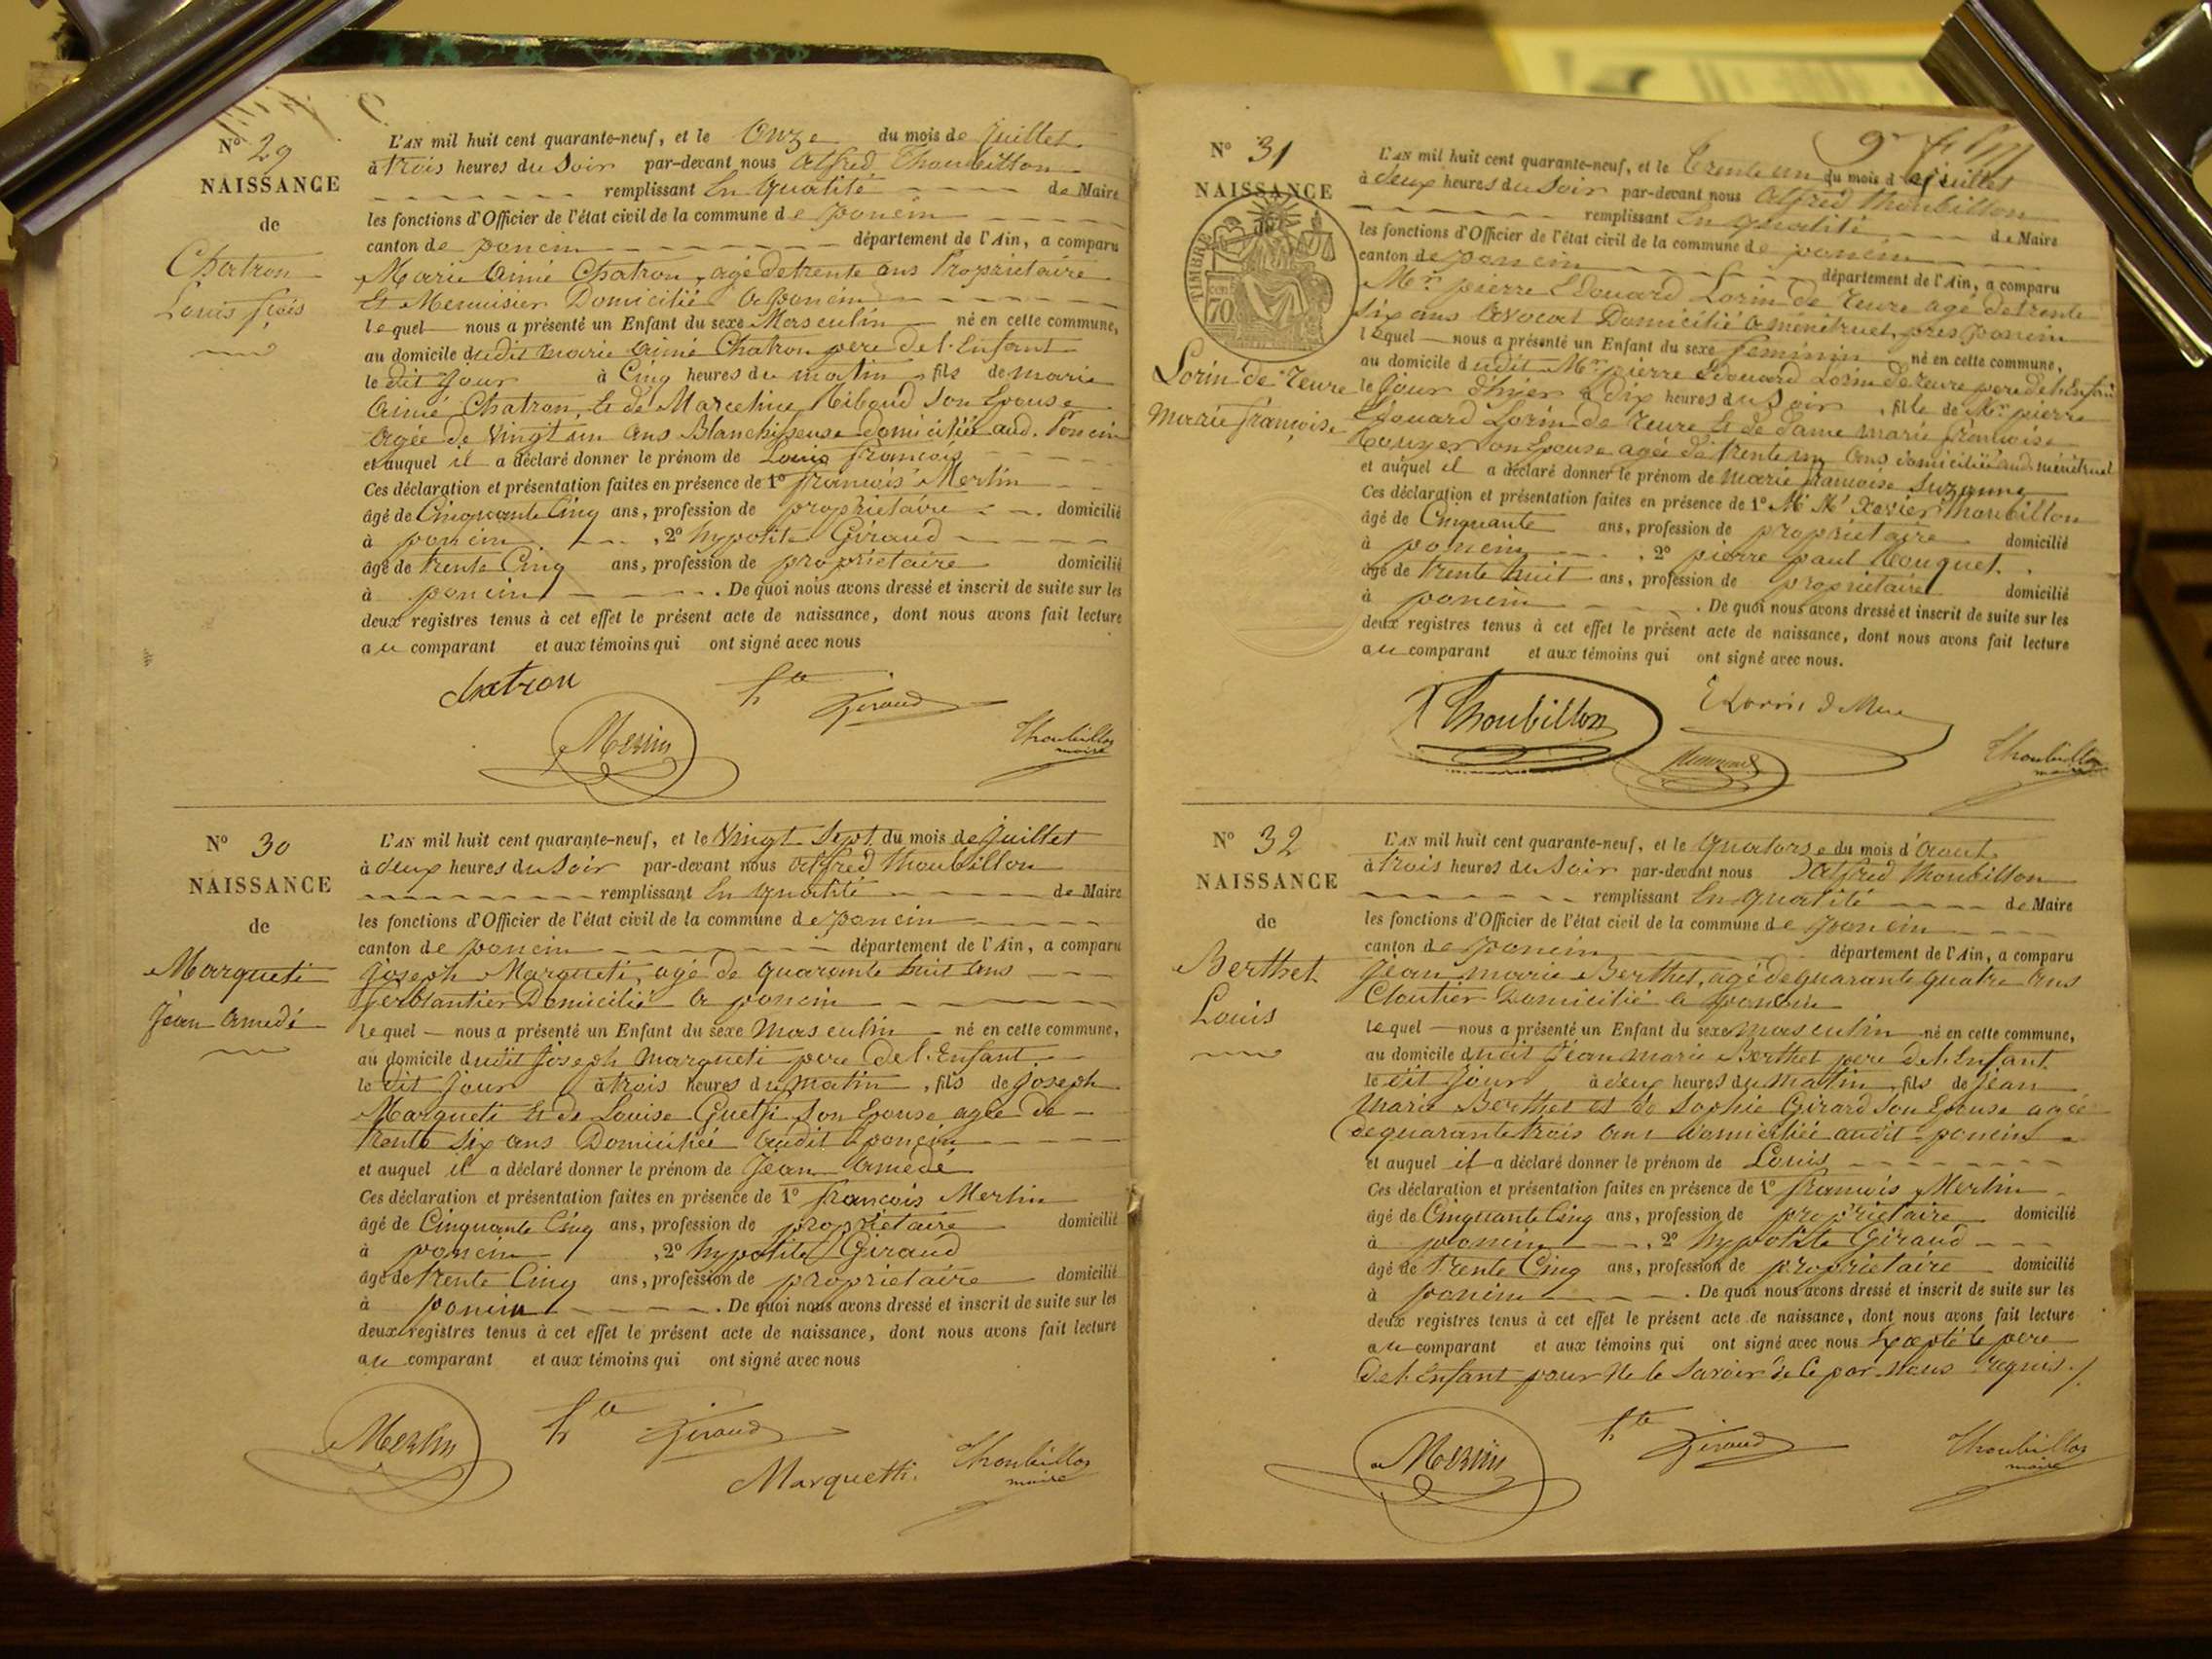 N° 29
NAISSANCE
de
Chatron
Louis fçois
L'AN mil huit cent quarante-neuf, et le Onze du mois de Juillet
à trois heures du Soir par-devant nous Alfred Thoubillon
remplissant En Qualité de Maire
les fonctions d'Officier de l'état civil de la commune de poncin
canton de poncin département de l'Ain, a comparu
Marie Aimé Chatron, agé de trente ans Propriétaire
Et Menuisier Domicilié a poncin
lequel nous a présenté un Enfant du sexe Masculin né en cette commune,
au domicile dudit marie Aimé Chatron pere de l'Enfant
le dit jour à Cinq heures du matin, fils de marie
Aimé Chatron, Et de Marceline Ribaud Son Epouse
agée de Vingt un ans Blanchisseuse domiciliée aud. Poncin
et auquel il a déclaré donner le prénom de Louis françois
Ces déclaration et présentation faites en présence de 1° françois Merlin
âgé de Cinquante Cinq ans, profession de propriétaire domicilié
à poncin, 2° hypolite Giraud
âgé de trente Cinq ans, profession de propriétaire domicilié
à poncin. De quoi nous avons dressé et inscrit de suite sur les
deux registres tenus à cet effet le présent acte de naissance, dont nous avons fait lecture
au comparant et aux témoins qui ont signé avec nous
chatron
hte Giraud
Merlin
Thoubillon
maire
N° 30
NAISSANCE
de
Marqueti
Jean Amedé
L'AN mil huit cent quarante-neuf, et le Vingt Sept du mois de Juillet
à deux heures du Soir par-devant nous Alfred Thoubillon
remplissant En Qualité de Maire
les fonctions d'Officier de l'état civil de la commune de poncin
canton de poncin département de l'Ain, a comparu
Joseph Marqueti, agé de quarante huit ans
ferblantier Domicilié a poncin
lequel nous a présenté un Enfant du sexe Masculin né en cette commune,
au domicile dudit Joseph Marqueti pere de l'Enfant
le dit jour à trois heures du matin, fils de joseph
Marqueti Et de Louise Son Epouse agée de
trente six ans Domiciliée audit poncin
et auquel il a déclaré donner le prénom de Jean Amedé
Ces déclaration et présentation faites en présence de 1° françois Merlin
âgé de Cinquante Cinq ans, profession de propriétaire domicilié
à poncin, 2° hypolite Giraud
âgé de trente Cinq ans, profession de propriétaire domicilié
à poncin. De quoi nous avons dressé et inscrit de suite sur les
deux registres tenus à cet effet le présent acte de naissance, dont nous avons fait lecture
au comparant et aux témoins qui ont signé avec nous
Merlin
hte Giraud
Marquetti
Thoubillon
maire
N° 31
NAISSANCE
TIMBRE
70
Lorin de Reure
Marie françoise
L'AN mil huit cent quarante-neuf, et le trente un du mois de juillet
à deux heures du Soir par-devant nous Alfred Thoubillon
remplissant En qualité de Maire
les fonctions d'Officier de l'état civil de la commune de poncin
canton de poncin département de l'Ain, a comparu
Mr pierre Edouard Lorin de Reure agé de trente
six ans Avocat Domicilié a ménétruel, pres poncin
lequel nous a présenté un Enfant du sexe feminin né en cette commune,
au domicile dudit Mr pierre Edouard Lorin de reure pere de l'Enfant
le Jour d'hier à dix heures du Soir, fille de Mr pierre
Edouard Lorin de Reure Et de Dame marie françoise
Son Epouse agée de trente un ans domiciliée aud. ménétruel
et auquel il a déclaré donner le prénom de marie françoise Suzanne
Ces déclaration et présentation faites en présence de 1° Mr Xavier Thoubillon
âgé de Cinquante ans, profession de propriétaire domicilié
à poncin, 2° pierre paul
âgé de trente huit ans, profession de propriétaire domicilié
à poncin. De quoi nous avons dressé et inscrit de suite sur les
deux registres tenus à cet effet le présent acte de naissance, dont nous avons fait lecture
au comparant et aux témoins qui ont signé avec nous.
Thoubillon
E Lorin d Reure
Thoubillon
maire
N° 32
NAISSANCE
de
Berthet
Louis
L'AN mil huit cent quarante-neuf, et le quatorze du mois d'Aout
à trois heures du Soir par-devant nous Alfred Thoubillon
remplissant En qualité de Maire
les fonctions d'Officier de l'état civil de la commune de poncin
canton de poncin département de l'Ain, a comparu
Jean marie Berthet, agé de quarante quatre ans
Cloutier Domicilié a poncin
lequel nous a présenté un Enfant du sexe masculin né en cette commune,
au domicile dudit Jean marie Berthet pere de l'Enfant
le dit jour à deux heures du matin, fils de Jean
Marie Berthet et de Sophie Girard Son Epouse agée
de quarante trois ans Domiciliée audit poncin
et auquel il a déclaré donner le prénom de Louis
Ces déclaration et présentation faites en présence de 1° françois Merlin
âgé de Cinquante Cinq ans, profession de propriétaire domicilié
à poncin, 2° hypolite Giraud
âgé de trente Cinq ans, profession de propriétaire domicilié
à poncin. De quoi nous avons dressé et inscrit de suite sur les
deux registres tenus à cet effet le présent acte de naissance, dont nous avons fait lecture
au comparant et aux témoins qui ont signé avec nous Excepté le pere
de l'Enfant pour ne le Savoir de ce par nous requis.
Merlin
hte Giraud
Thoubillon
maire